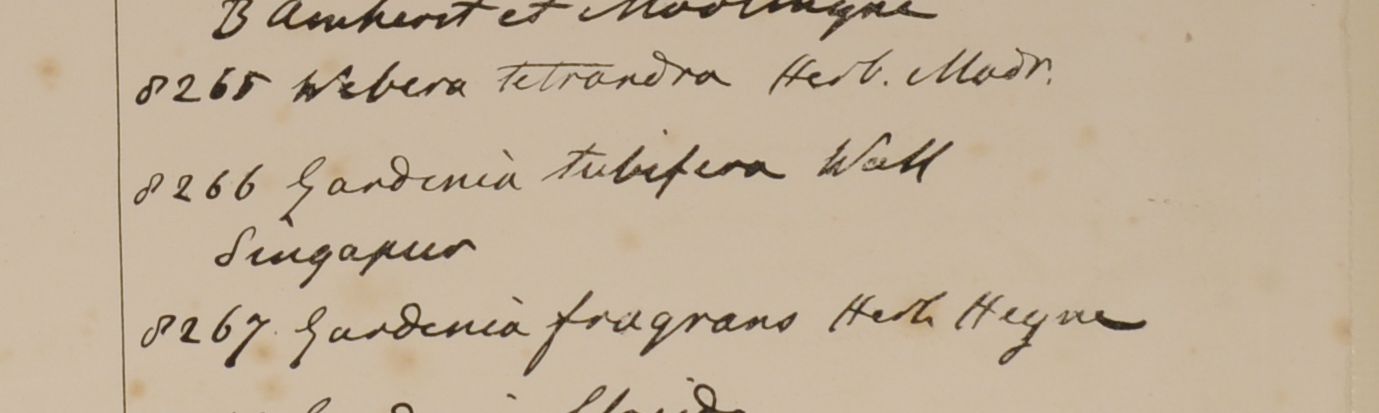 B Amherst et Moolmyne
8265 Webera tetrandra Herb. Madr.
8266 Gardenia tubifera Wall
Singapur
8267 Gardenia fragrans Herb. Heyne
Gardenia florida